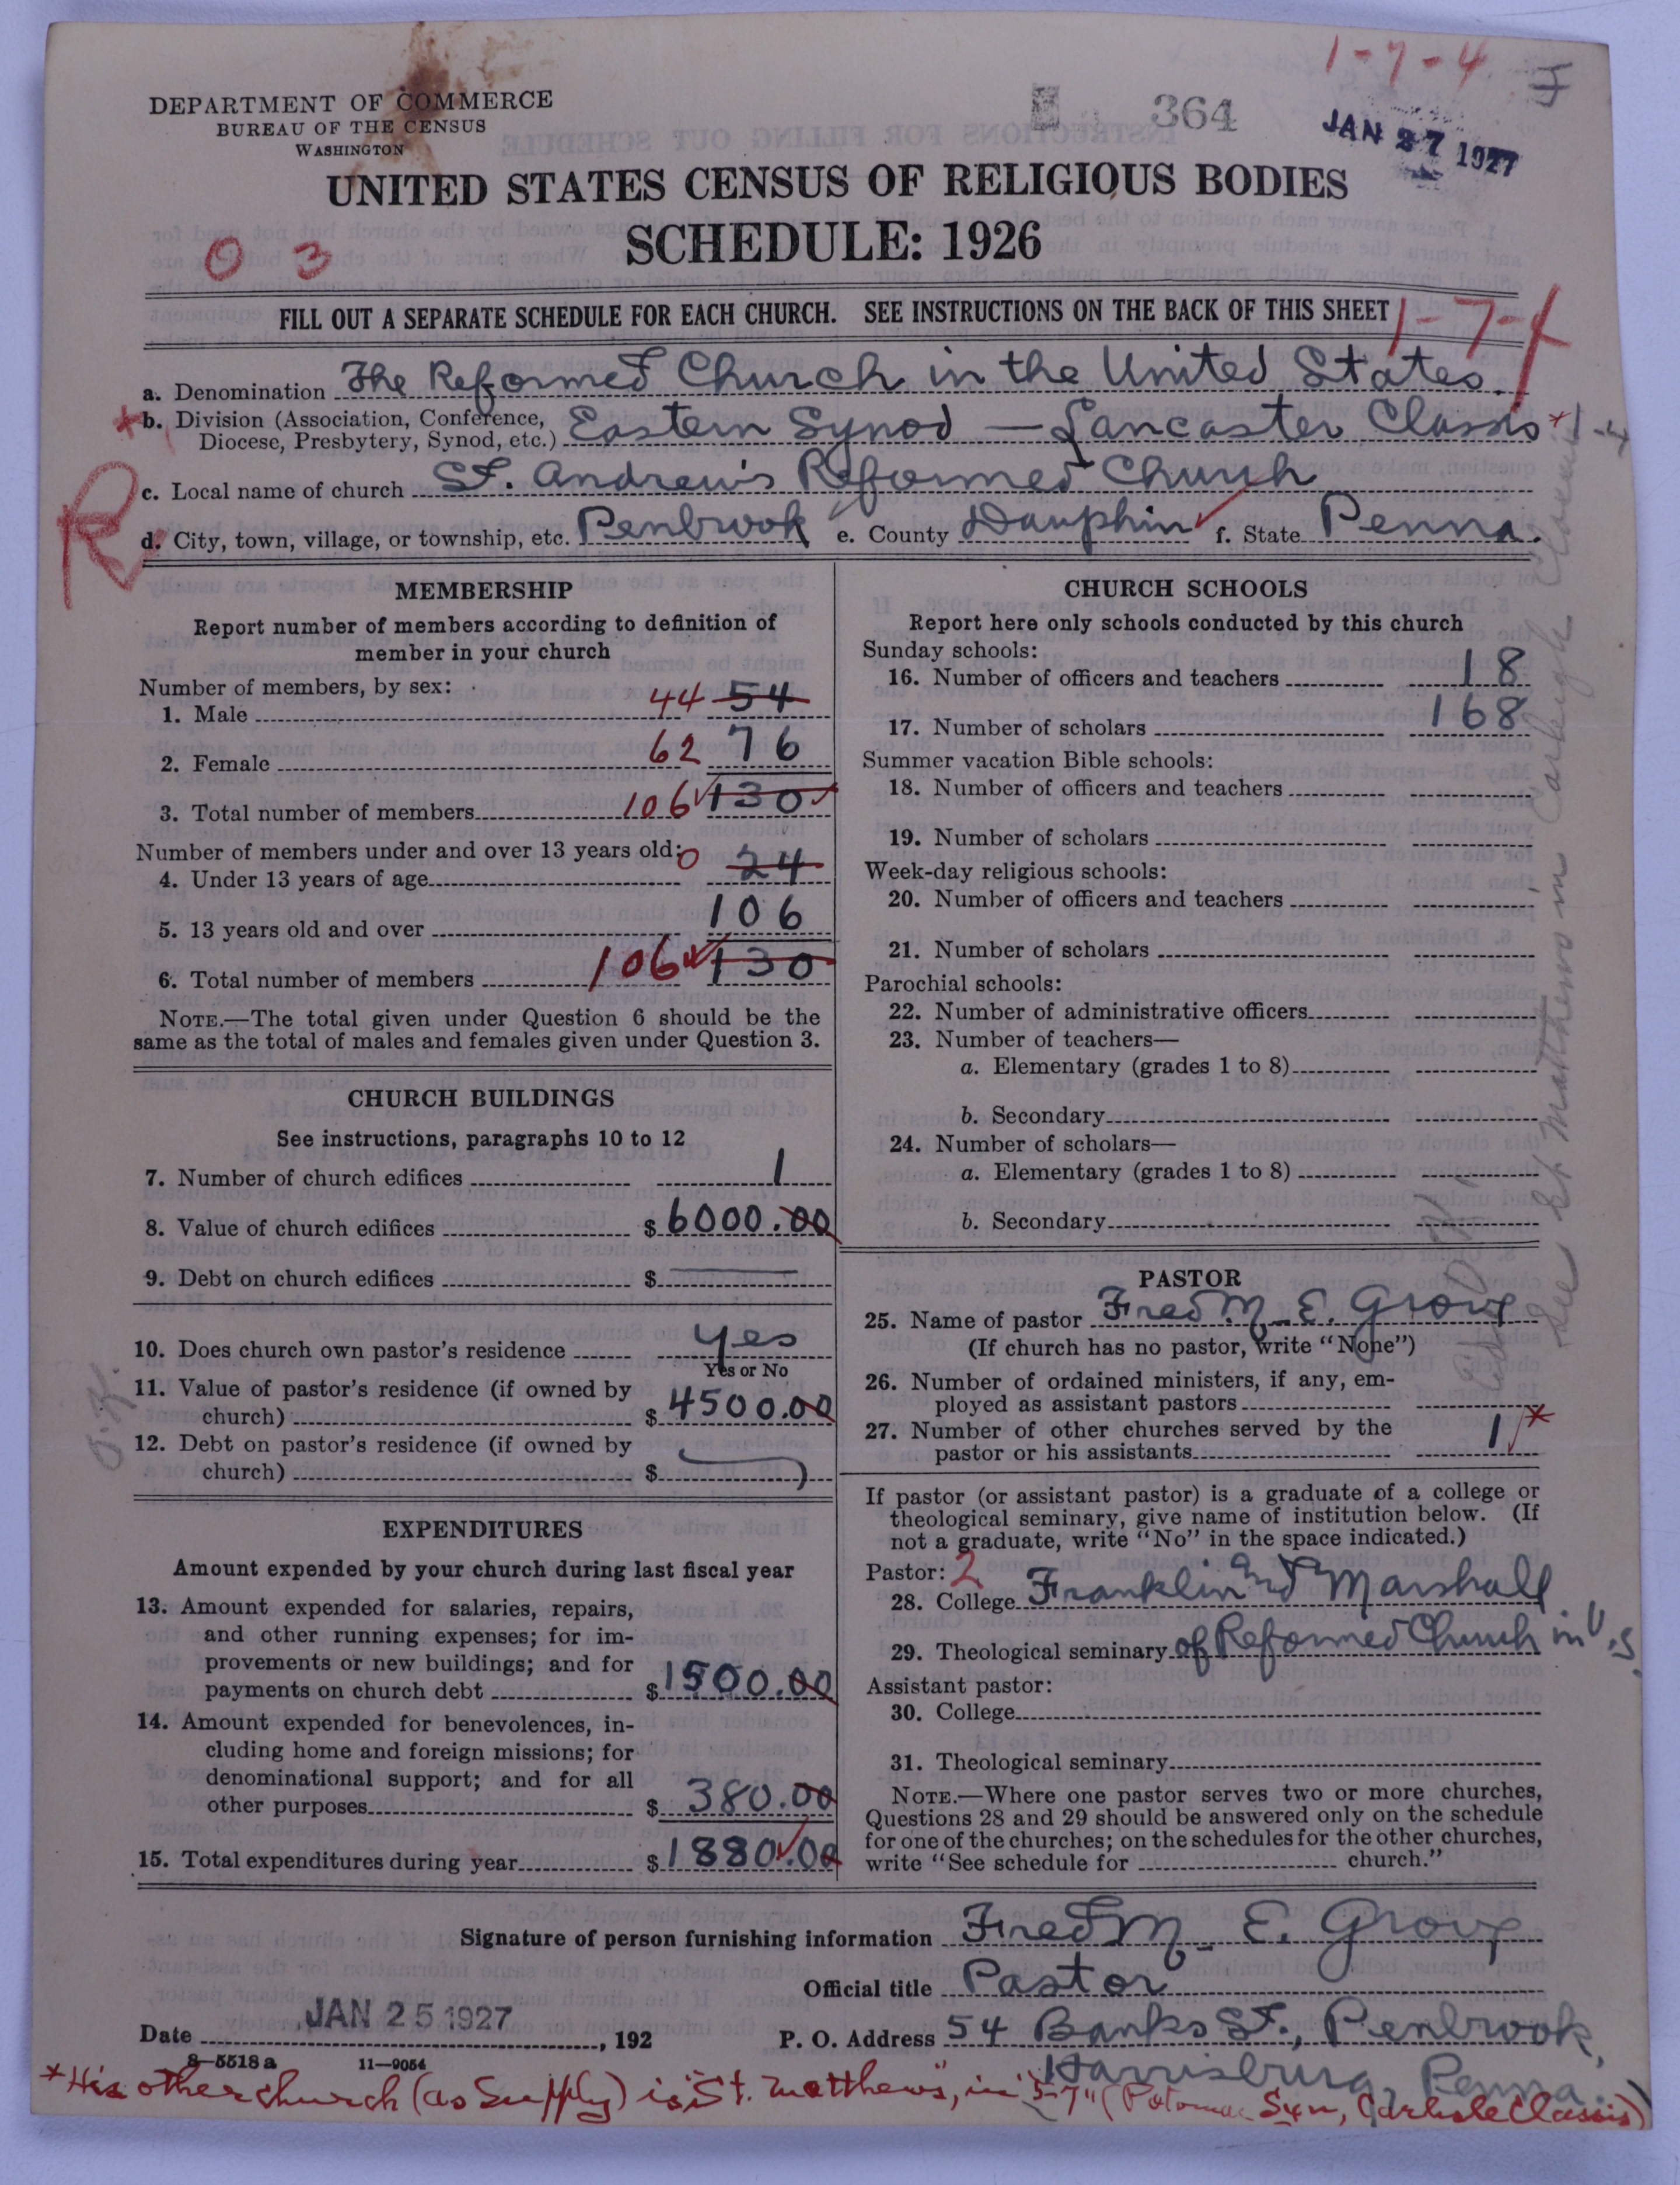 1-7-4
DEPARTMENT OF COMMERCE
BUREAU OF THE CENSUS
WASHINGTON
364
JAN 27 1927
UNITED STATES CENSUS OF RELIGIOUS BODIES
SCHEDULE: 1926
0 3
FILL OUT A SEPARATE SCHEDULE FOR EACH CHURCH. SEE INSTRUCTIONS ON THE BACK OF THIS SHEET
1-7-4
a. Denomination The Reformed Church in the United States
*b. Division (Association, Conference, Diocese, Presbytery, Synod, etc.) Eastern Synod — Lancaster Classis *1-4
R
c. Local name of church St. Andrew's Reformed Church
d. City, town, village, or township, etc. Penbrook e. County Dauphin f. State Penna.
MEMBERSHIP
Report number of members according to definition of
member in your church
Number of members, by sex:
1. Male 44 54
2. Female 62 76
3. Total number of members 106 130
Number of members under and over 13 years old:
4. Under 13 years of age 0 24
5. 13 years old and over 106
6. Total number of members 106 130
NOTE.—The total given under Question 6 should be the
same as the total of males and females given under Question 3.
CHURCH BUILDINGS
See instructions, paragraphs 10 to 12
7. Number of church edifices 1
8. Value of church edifices $ 6000.00
9. Debt on church edifices $ —
10. Does church own pastor's residence yes
Yes or No
11. Value of pastor's residence (if owned by
church) $ 4500.00
12. Debt on pastor's residence (if owned by
church) $
O.K.
EXPENDITURES
Amount expended by your church during last fiscal year
13. Amount expended for salaries, repairs,
and other running expenses; for im-
provements or new buildings; and for
payments on church debt $ 1500.00
14. Amount expended for benevolences, in-
cluding home and foreign missions; for
denominational support; and for all
other purposes $ 380.00
15. Total expenditures during year $ 1880.00
CHURCH SCHOOLS
Report here only schools conducted by this church
Sunday schools:
16. Number of officers and teachers 18
17. Number of scholars 168
Summer vacation Bible schools:
18. Number of officers and teachers
19. Number of scholars
Week-day religious schools:
20. Number of officers and teachers
21. Number of scholars
Parochial schools:
22. Number of administrative officers
23. Number of teachers—
a. Elementary (grades 1 to 8)
b. Secondary
24. Number of scholars—
a. Elementary (grades 1 to 8)
b. Secondary
PASTOR
25. Name of pastor Fred M. E. Grove
(If church has no pastor, write "None")
26. Number of ordained ministers, if any, em-
ployed as assistant pastors
27. Number of other churches served by the
pastor or his assistants 1 *
If pastor (or assistant pastor) is a graduate of a college or
theological seminary, give name of institution below. (If
not a graduate, write "No" in the space indicated.)
Pastor: 2
28. College Franklin and Marshall
29. Theological seminary of Reformed Church in U.S.
Assistant pastor:
30. College
31. Theological seminary
NOTE.—Where one pastor serves two or more churches,
Questions 28 and 29 should be answered only on the schedule
for one of the churches; on the schedules for the other churches,
write "See schedule for church."
See St Matthews in Carlisle Classis
Signature of person furnishing information Fred M. E. Grove
Official title Pastor
Date JAN 25 1927, 192
P. O. Address 54 Banks St., Penbrook,
Harrisburg, Penna.
8-5518 a 11-9054
*His other church (as Supply) is "St. Matthews", in "5-7" (Potomac Syn, Carlisle Classis)